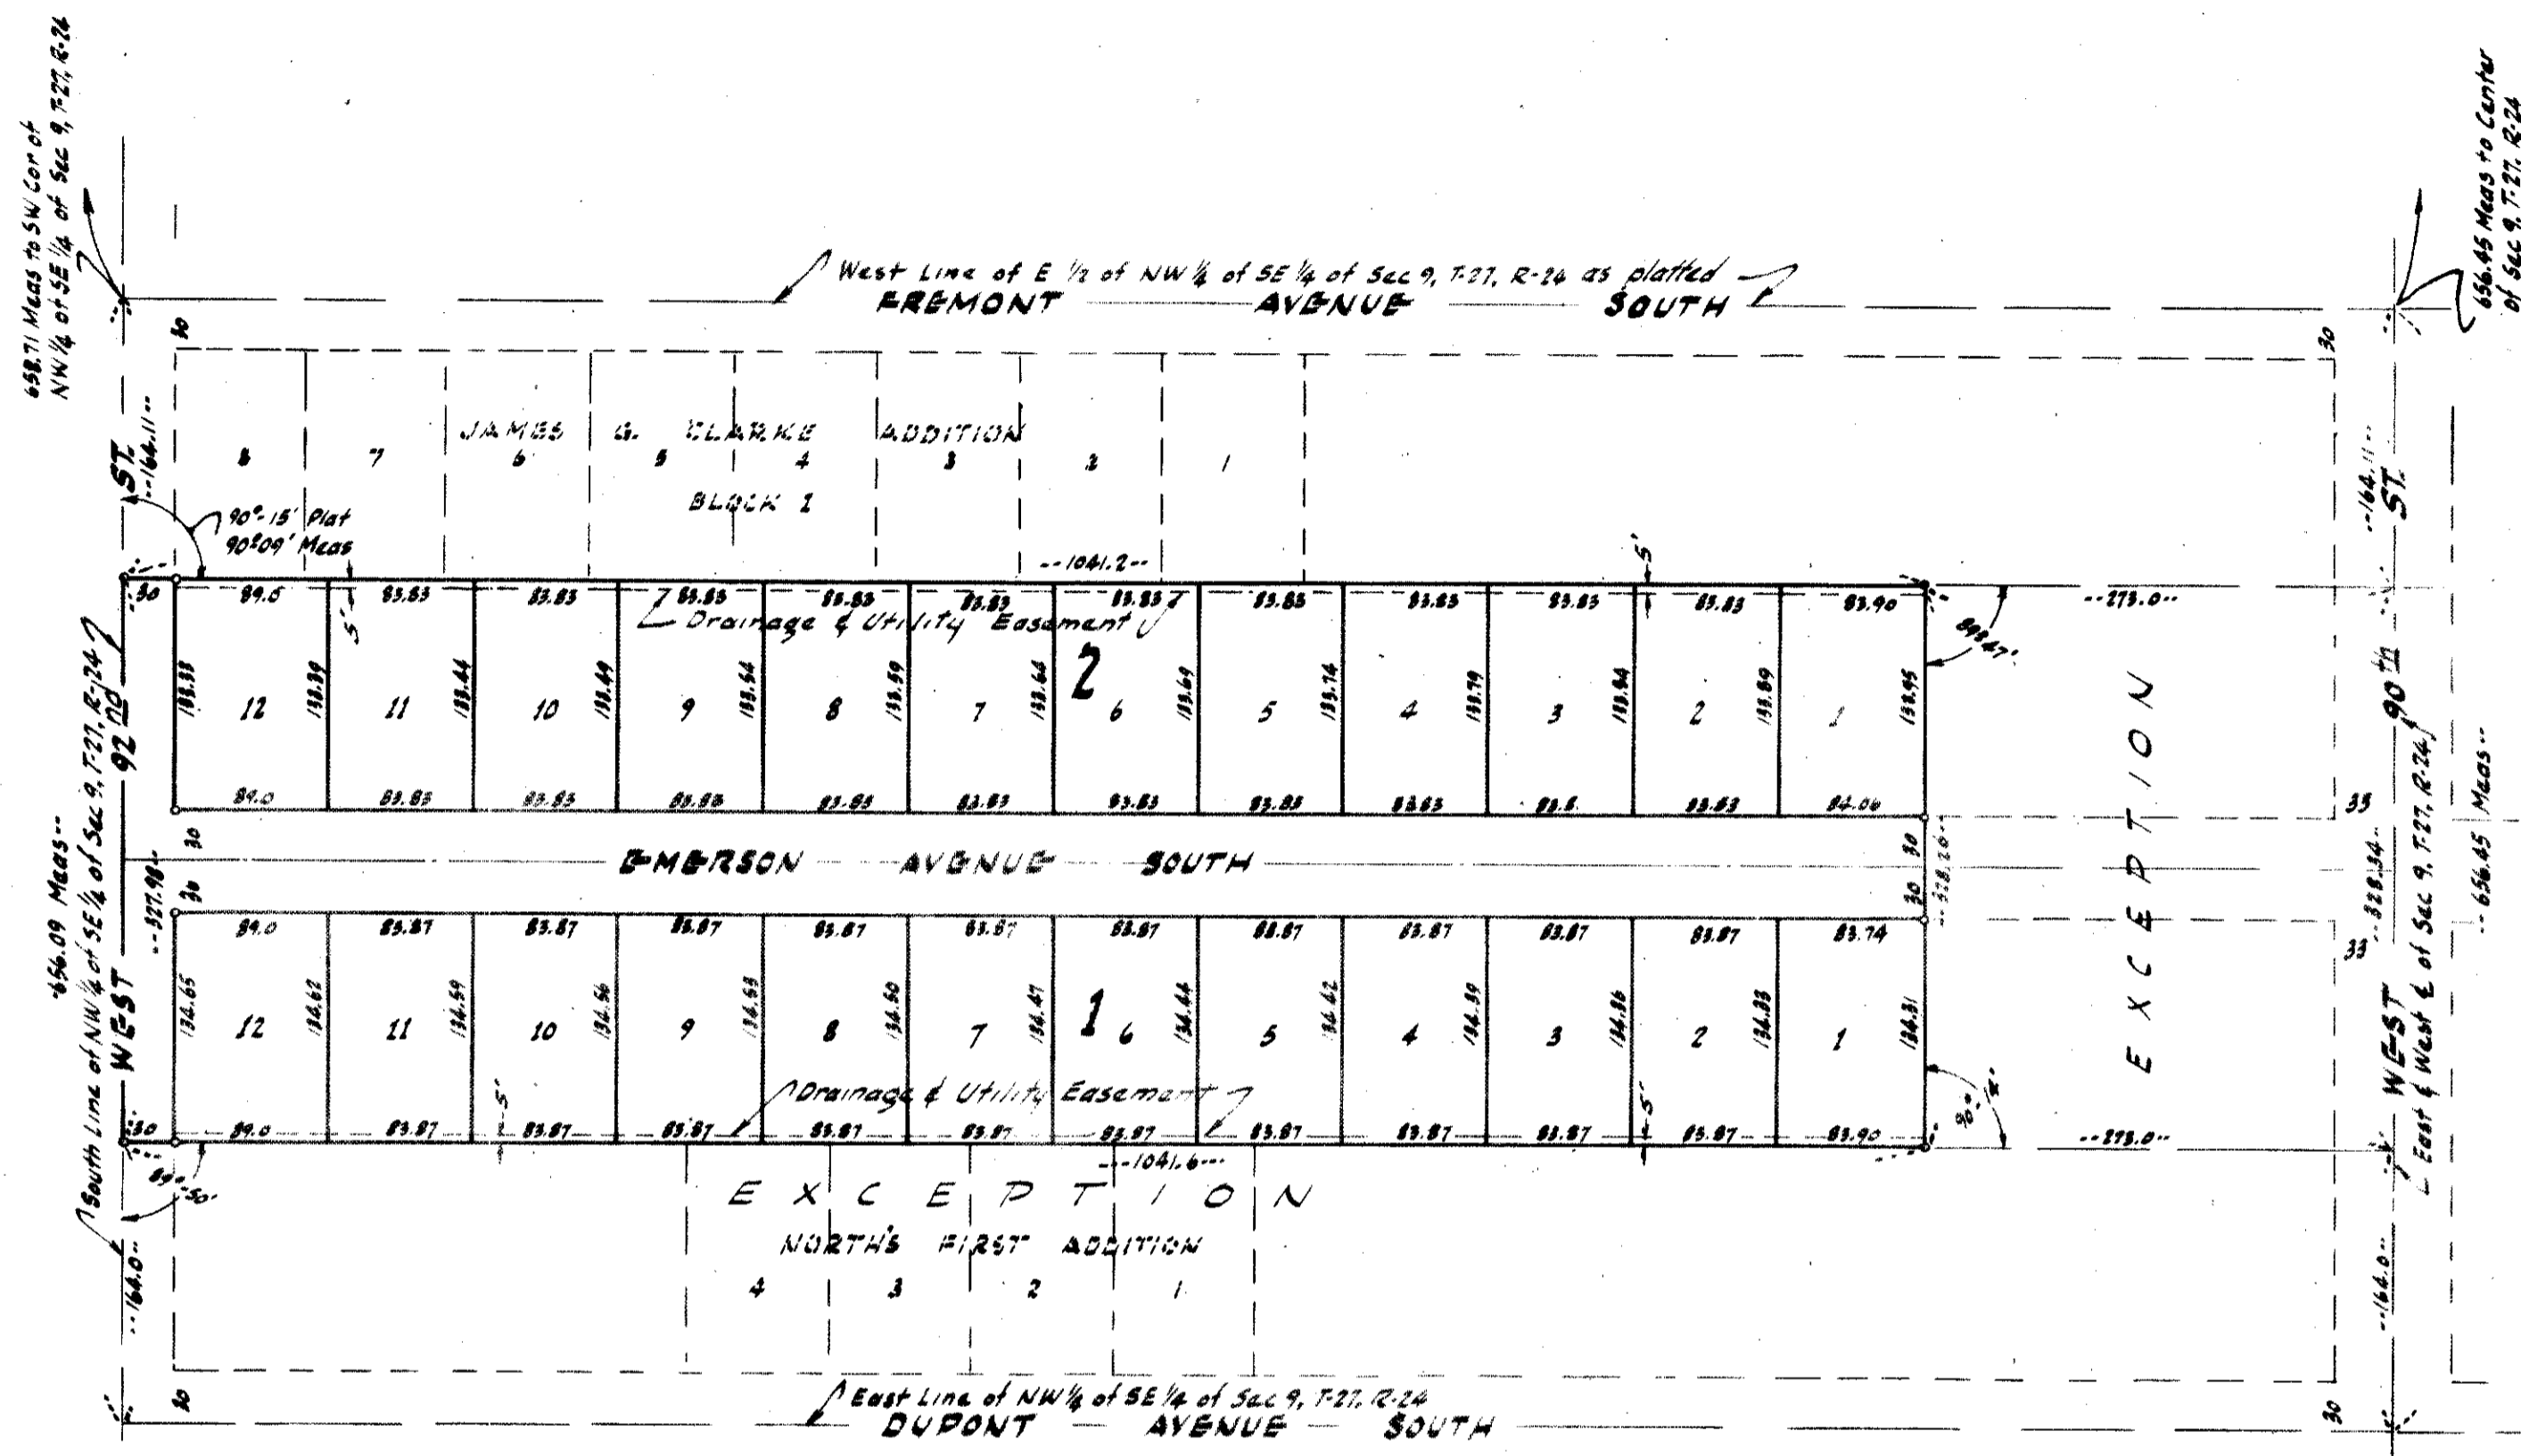 658.71 Meas to SW Cor of
NW ¼ of SE ¼ of Sec 9, T-27, R-24
656.45 Meas to Center
of Sec 9, T-27, R-24
West Line of E ½ of NW ¼ of SE ¼ of Sec 9, T-27, R-24 as platted
FREMONT AVENUE SOUTH
30
30
JAMES G. CLARKE ADDITION
8 7 6 5 4 3 2 1
BLOCK 1
ST.
--164.11--
90°-15' Plat
90°09' Meas
--164.11--
ST.
--1041.2--
5'
30 89.0 83.83 83.83 83.83 83.83 83.83 83.83 83.83 83.83 83.83 83.83 83.90 --273.0--
5'
Drainage & Utility Easement
89°47'
2
133.33 133.39 133.44 133.49 133.54 133.59 133.64 133.69 133.74 133.79 133.84 133.89 133.95
12 11 10 9 8 7 6 5 4 3 2 1
89.0 83.83 83.83 83.83 83.83 83.83 83.83 83.83 83.83 83.8 83.83 84.06
92nd
90th
33
30
30
EMERSON AVENUE SOUTH
30
30
--327.98--
--328.26--
--328.34--
-656.09 Meas--
--656.45 Meas--
South Line of NW ¼ of SE ¼ of Sec 9, T-27, R-24
East & West ℄ of Sec 9, T-27, R-24
EXCEPTION
33
WEST
WEST
89.0 83.87 83.87 83.87 83.87 83.87 83.87 83.87 83.87 83.87 83.87 83.74
134.65 134.62 134.59 134.56 134.53 134.50 134.47 134.44 134.42 134.39 134.36 134.33 134.31
1
12 11 10 9 8 7 6 5 4 3 2 1
Drainage & Utility Easement
5'
5'
30 89.0 83.87 83.87 83.87 83.87 83.87 83.87 83.87 83.87 83.87 83.87 83.90 --273.0--
--1041.6---
89°-50'
EXCEPTION
NORTH'S FIRST ADDITION
4 3 2 1
--164.0--
--164.0--
30
30
East Line of NW ¼ of SE ¼ of Sec 9, T-27, R-24
DUPONT AVENUE SOUTH